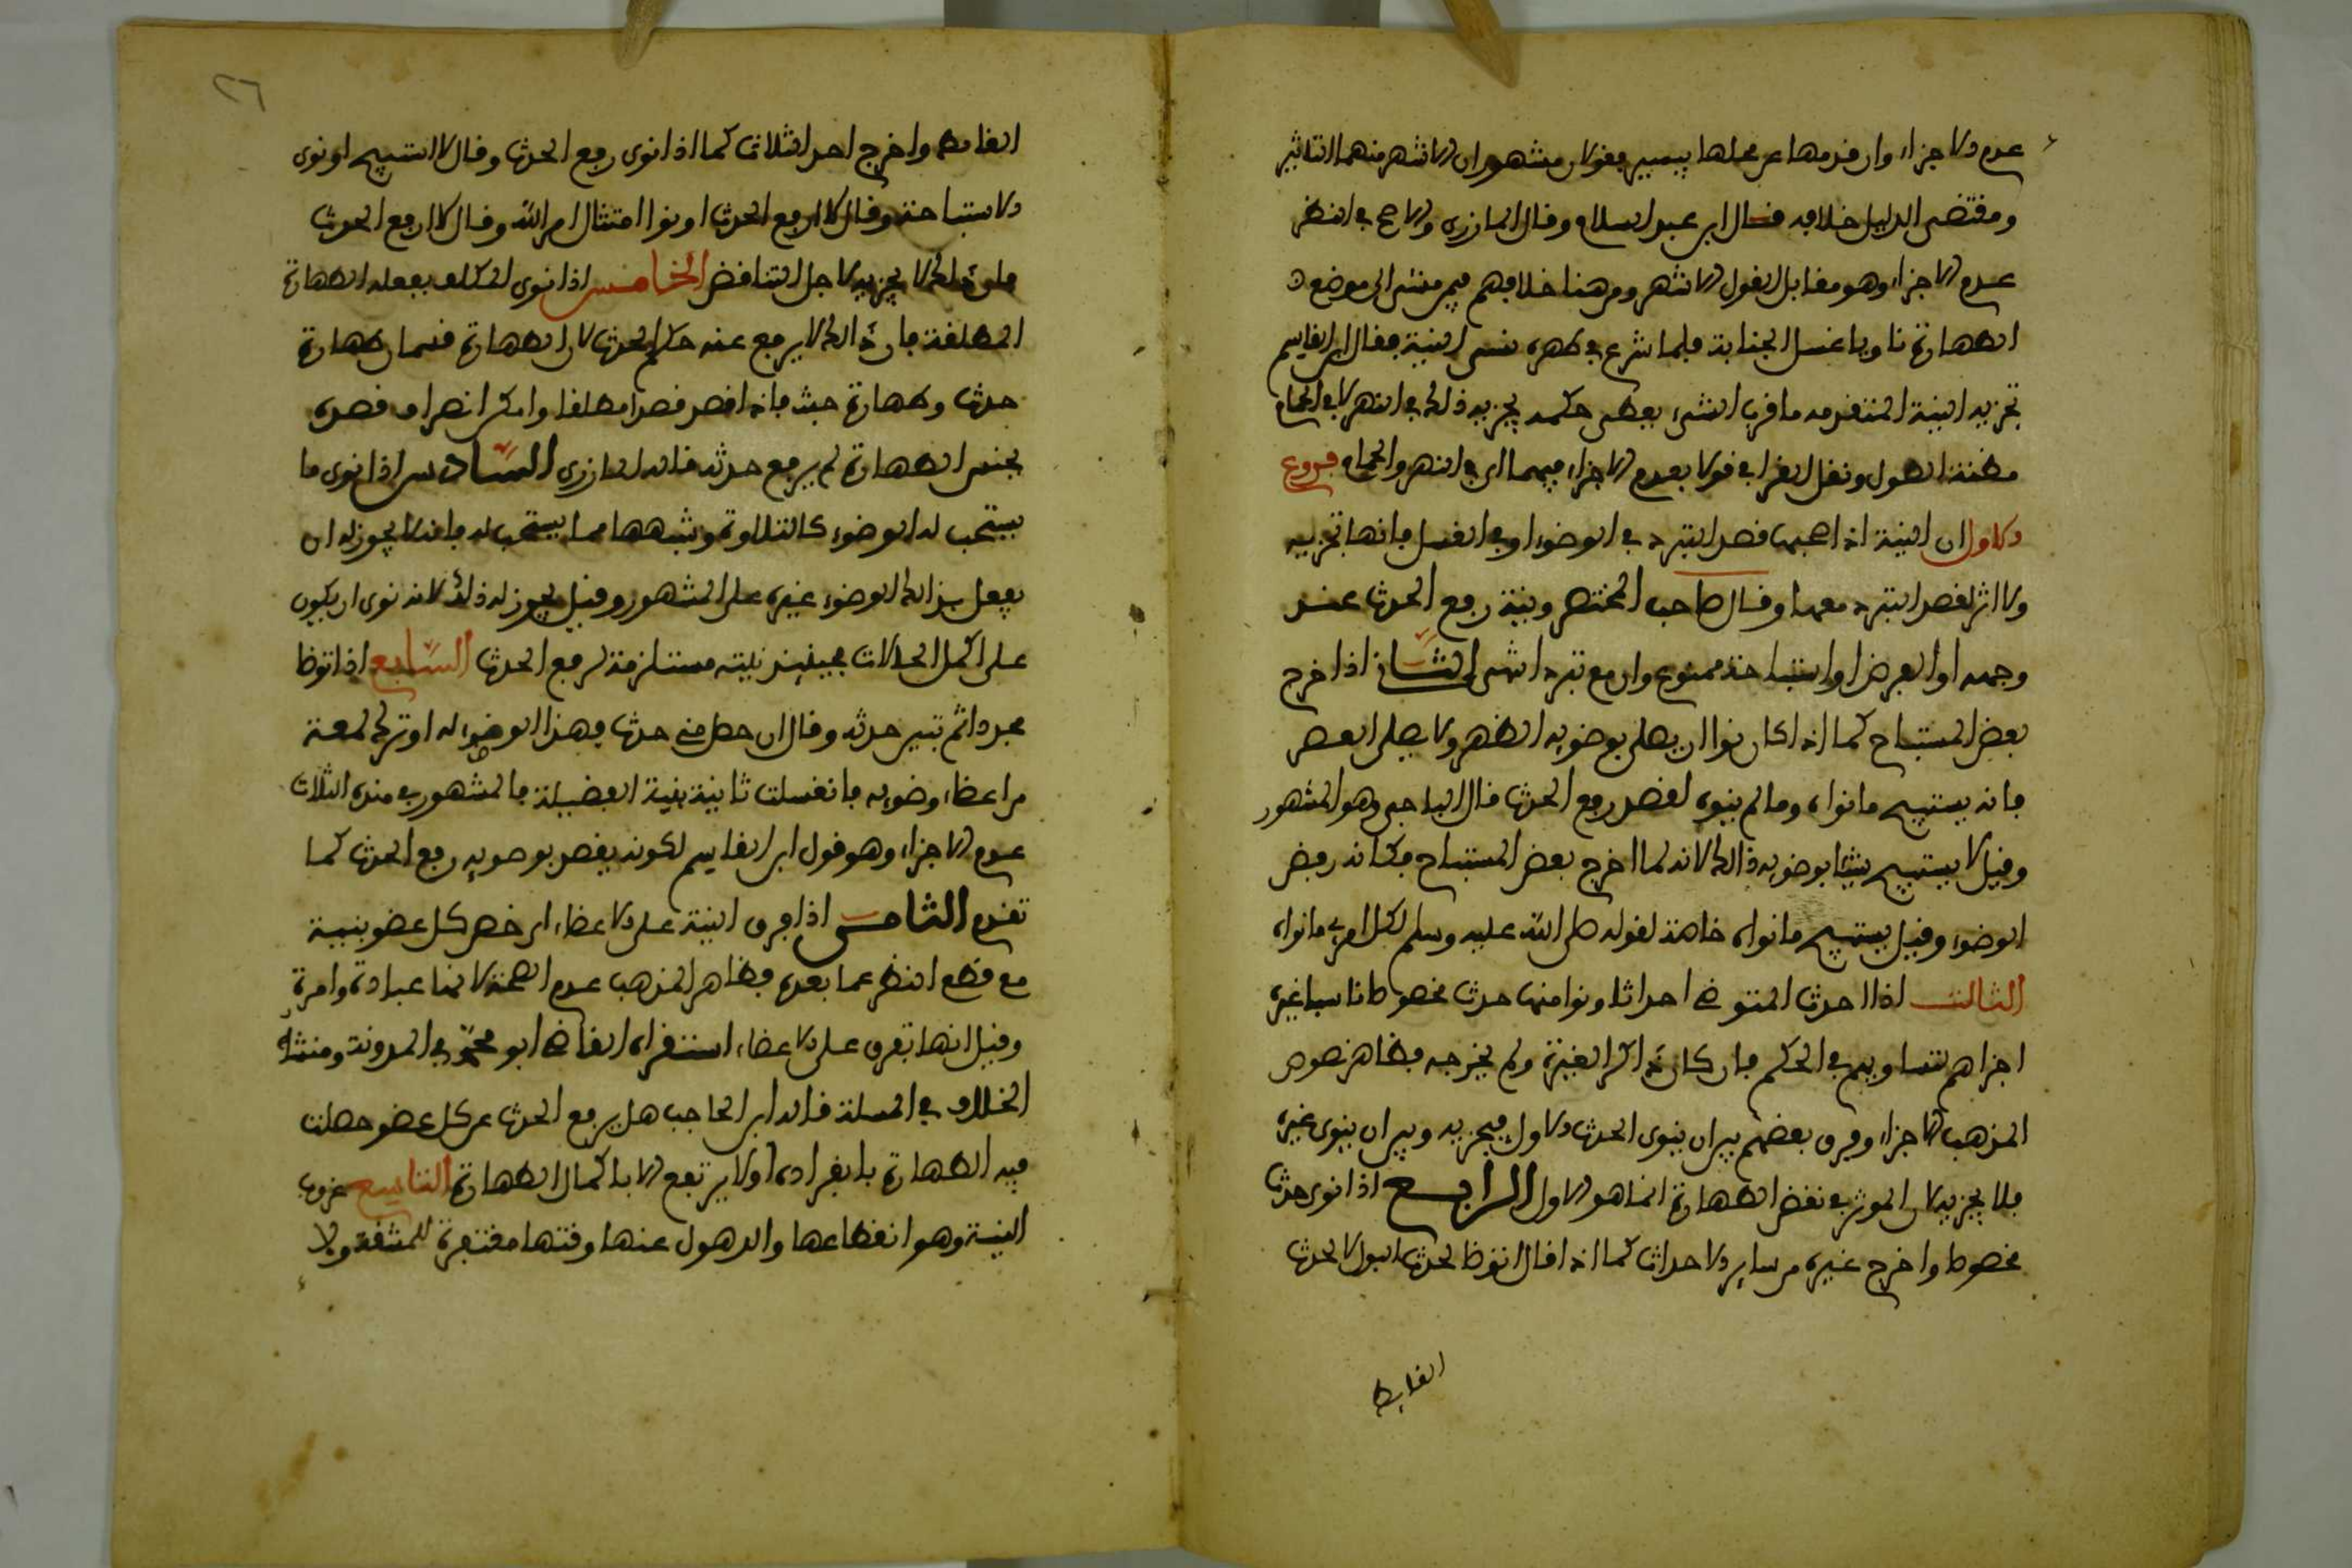 عدم الاجزاء وان قدمها عن محلها بيسير فقولان مشهوران الاشهر منهما التاثير
ومقتضى الدليل خلافه قال ابن عبد السلام وقال المازري والاصح في النظر
عدم الاجزاء وهو مقابل القول الاشهر ومن هنا خلافهم فيمن مشى الى موضع
الطهارة ناويا غسل الجنابة فلما شرع في طهره نسي النية فقال ابن القاسم
تجزيه النية المتقدمه ما قرب الشيء يعطى حكمه يجزيه ذلك في النهر لا في الحمام
مظنة الطول ونقل القرافي قولا بعدم الاجزاء فيهما اي في النهر والحمام فروع
الاول ان النية اذا صحبها قصد التبرد في الوضوء او في الغسل فانها تجزيه
ولا اثر لقصد التبرد معها وقال صاحب المختصر ونية رفع الحدث عند
وجهه او الفرض او استباحة ممنوع وان مع تبرد انتهى الثاني اذا اخرج
بعض المستباح كما اذا كان نوا ان يصلي بوضويه الظهر ولا يصلي العصر
فانه يستبيح ما نواه وما لم ينوه لقصد رفع الحدث قال الباجي وهو المشهور
وقيل لا يستبيح شيئا بوضويه ذالك لانه لما اخرج بعض المستباح فكانه رفض
الوضوء وقيل يستبيح ما نواه خاصة لقوله صلى الله عليه وسلم لكل امرئ ما نواه
الثالث اذا احدث المتوضي احداثا ونوا منها حدث مخصوصا ناسيا غيره
اجزاهم لتساويهم في الحكم فان كان ذاكرا لغيره ولم يخرجه فظاهر نصوص
المذهب الاجزاء وفرق بعضهم بين ان ينوي الحدث الاول فيجزيه وبين ان ينوي غيره
فلا يجزيه لان الموثر في نقض الطهارة انما هو الاول الرابع اذا نوى حدثا
مخصوصا واخرج غيره من ساير الاحداث كما اذا قال اتوضا لحدث البول لا لحدث
الغايط
٢٦
الغايط واخرج احد الثلاث كما اذا نوى رفع الحدث وقال لا استبيح او نوى
الاستباحة وقال لا ارفع الحدث او نوا امتثال امر الله وقال لا ارفع الحدث
فان ذلك لا يجزيه لاجل التناقض الخامس اذا نوى المكلف بفعله الطهارة
المطلقة فان ذالك لا يرفع عنه حكم الحدث لان الطهارة قسمان طهارة
حدث وطهارة خبث فاذا قصد قصدا مطلقا وامكن انصراف قصده
بجنس الطهارة لم يرفع حدثه قاله المازري السادس اذا نوى ما
يستحب له الوضوء كالتلاوة وشبهها مما يستحب له فانه لا يجوز له ان
يفعل بذالك الوضوء غيره على المشهور وقيل يجوز له ذلك لانه نوى ان يكون
على اكمل الحالات فحينئذ نيته مستلزمة لرفع الحدث السابع اذا توضا
مجددا ثم تبين حدثه وقال ان حصل مني حدث فهذا الوضوء له او ترك لمعة
من اعضاء وضويه فانغسلت ثانية بنية الفضيلة فالمشهور في هذه الثلاث
عدم الاجزاء وهو قول ابن القاسم لكونه يقصد بوضويه رفع الحدث كما
تقدم الثامن اذا فرق النية على الاعضاء اي خص كل عضو بنية
مع قطع النظر عما بعده فظاهر المذهب عدم الصحة لانها عبادة وامرة
وقيل انها تفرق على الاعضاء استقراه القاضي ابو محمد في المدونة ومنشأ
الخلاف في المسئلة قاله ابن الحاجب هل يرفع الحدث عن كل عضو حصلت
فيه الطهارة بانفراده او لا يرتفع الا باكمال الطهارة التاسع عزوب
النية وهو انقطاعها والذهول عنها وقتها مغتفرة للمشقة ولا